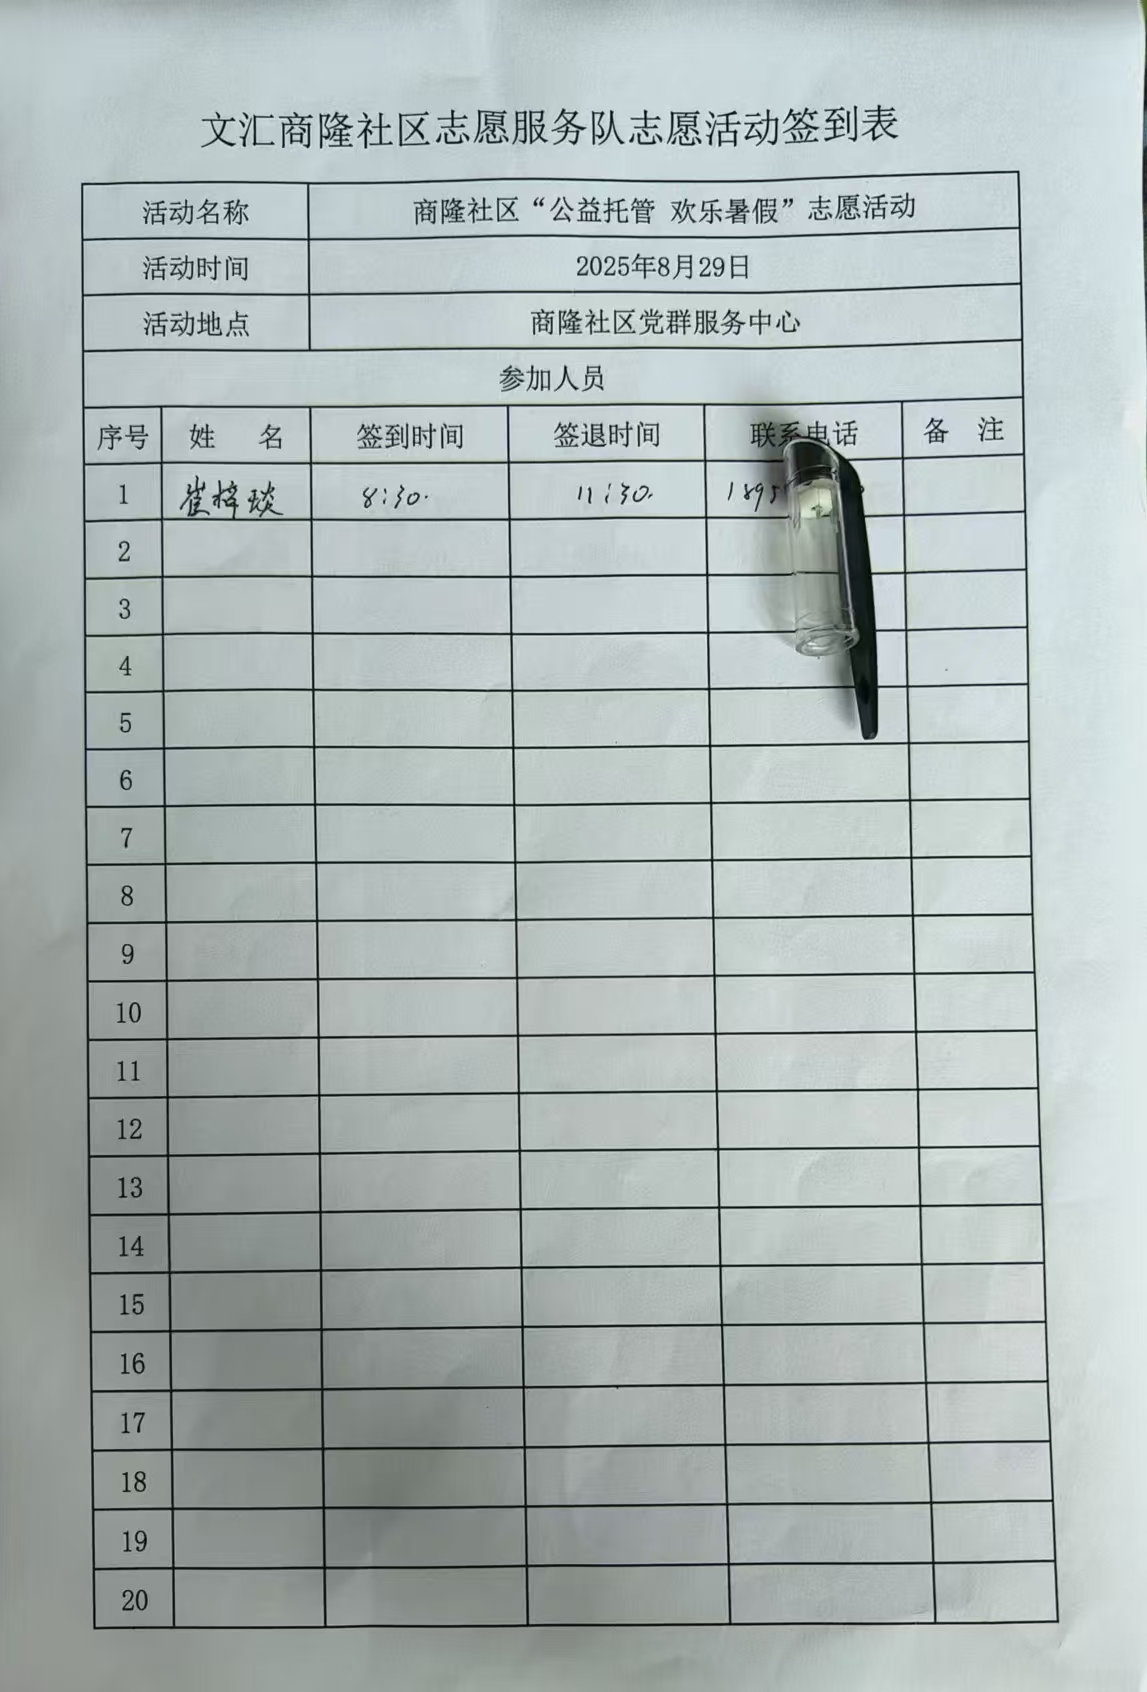 文汇商隆社区志愿服务队志愿活动签到表
活动名称 商隆社区“公益托管 欢乐暑假”志愿活动
活动时间 2025年8月29日
活动地点 商隆社区党群服务中心
参加人员
序号 姓 名 签到时间 签退时间 联系电话 备 注
1 崔梓琰 8:30. 11:30. 189
2
3
4
5
6
7
8
9
10
11
12
13
14
15
16
17
18
19
20